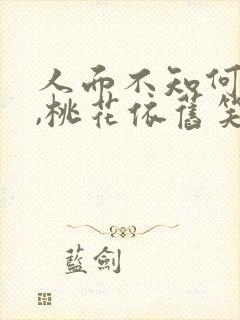 人而不知何
,桃花依舊笑
藍劍